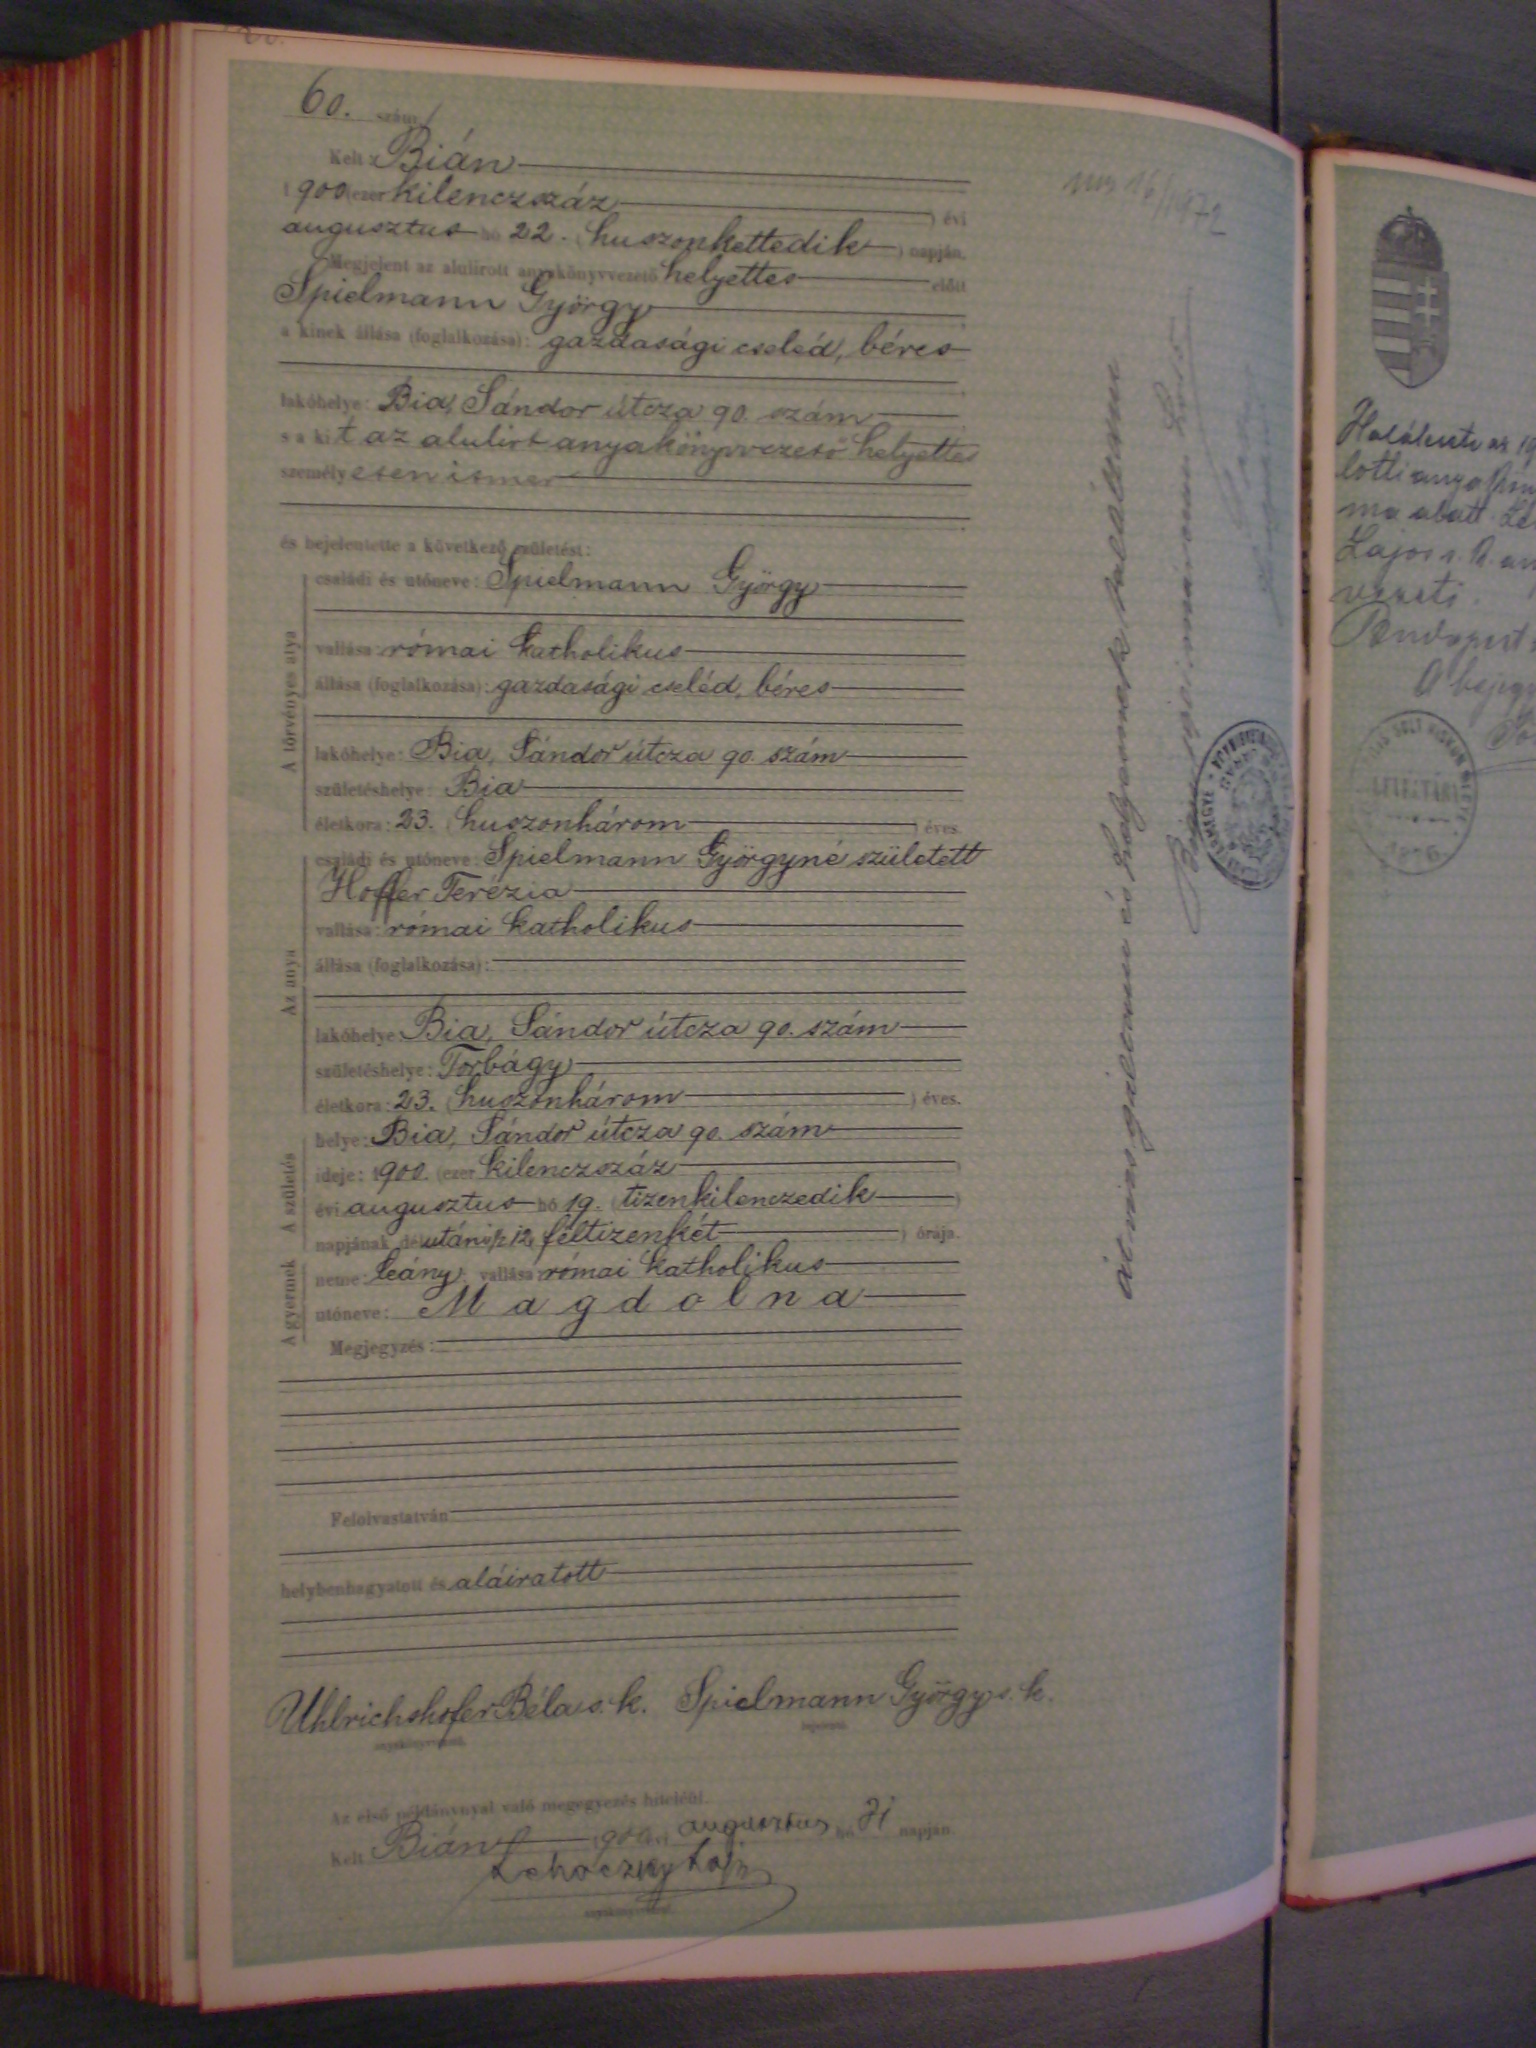 60. szám.
Kelt: Bián
1900 (ezer kilenczszáz) évi
augusztus hó 22. (huszonkettedik) napján.
Megjelent az alulirott anyakönyvvezető helyettes előtt
Spielmann György
a kinek állása (foglalkozása): gazdasági cseléd, béres
lakóhelye: Bia, Sándor útcza 90. szám
s a kit az alulirt anyakönyvvezető helyettes
személyesen ismer
és bejelentette a következő születést:
A törvényes atya
családi és utóneve: Spielmann György
vallása: római katholikus
állása (foglalkozása): gazdasági cseléd, béres
lakóhelye: Bia, Sándor útcza 90. szám
születéshelye: Bia
életkora: 23. (huszonhárom) éves.
Az anya
családi és utóneve: Spielmann Györgyné született
Hoffer Terézia
vallása: római katholikus
állása (foglalkozása):
lakóhelye: Bia, Sándor útcza 90. szám
születéshelye: Torbágy
életkora: 23. (huszonhárom) éves.
A születés
helye: Bia, Sándor útcza 90. szám
ideje: 1900. (ezer kilenczszáz)
évi augusztus hó 19. (tizenkilenczedik)
napjának délutáni ½12 (féltizenkét) órája.
A gyermek
neme: leány. vallása: római katholikus
utóneve: Magdolna
Megjegyzés:
Felolvastatván
helybenhagyatott és aláiratott
Uhlrichshofer Béla s. k. Spielmann György s. k.
anyakönyvvezető. bejelentő.
Az első példánynyal való megegyezés hiteléül.
Kelt Bián 1900 évi augusztus hó 31 napján.
Lehoczky Lajos
anyakönyvvezető.
16/1972
átvizsgáltam és helyesnek találtam
Halálesete az 19
ma alatt.
Lajos s. k.
vezető.
Budapest
LEVÉLTÁRA
1876